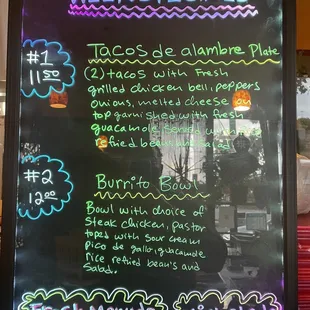 #1
11.50
Tacos de alambre Plate
(2) tacos with Fresh
grilled chicken bell, peppers
onions, melted cheese on
top garnished with fresh
guacamole served
refried beans and salad
#2
12.00
Burrito Bowl
Bowl with choice of
Steak chicken, pastor
toped with sour cream
Pico de gallo, guacamole
rice refried bean's and
Salad.